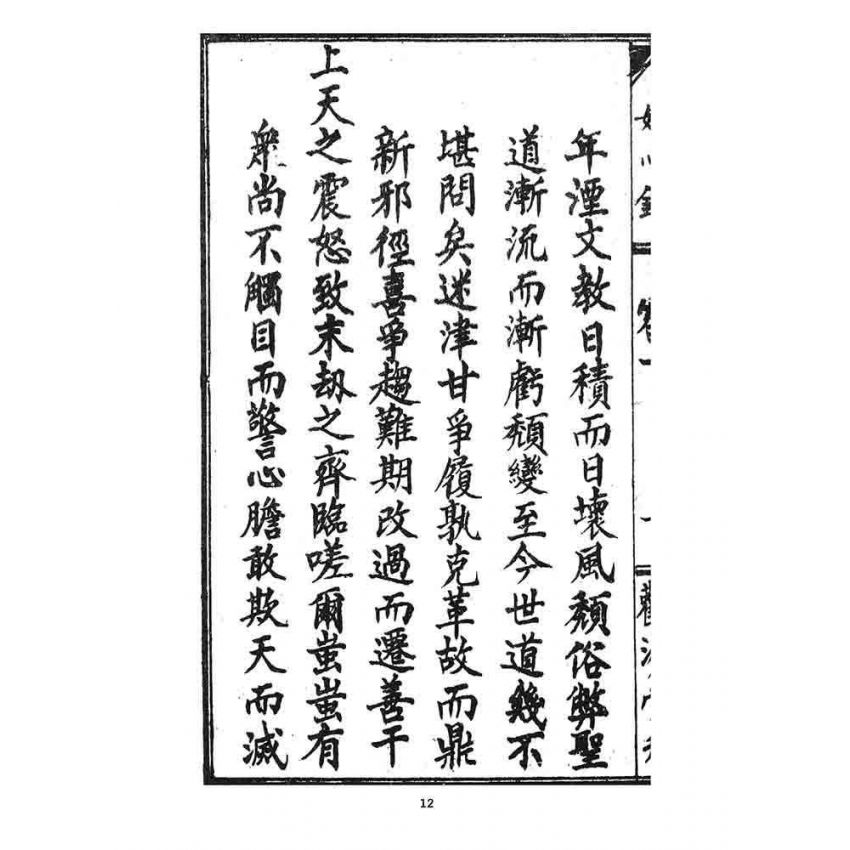 年湮文教日積而日壞風頹俗弊聖
道漸流而漸虧頹變至今世道幾不
堪問矣迷津甘爭履孰克革故而鼎
新邪徑喜爭趨難期改過而遷善干
上天之震怒致末劫之齊臨嗟爾蚩蚩有
衆尚不觸目而警心膽敢欺天而滅
12